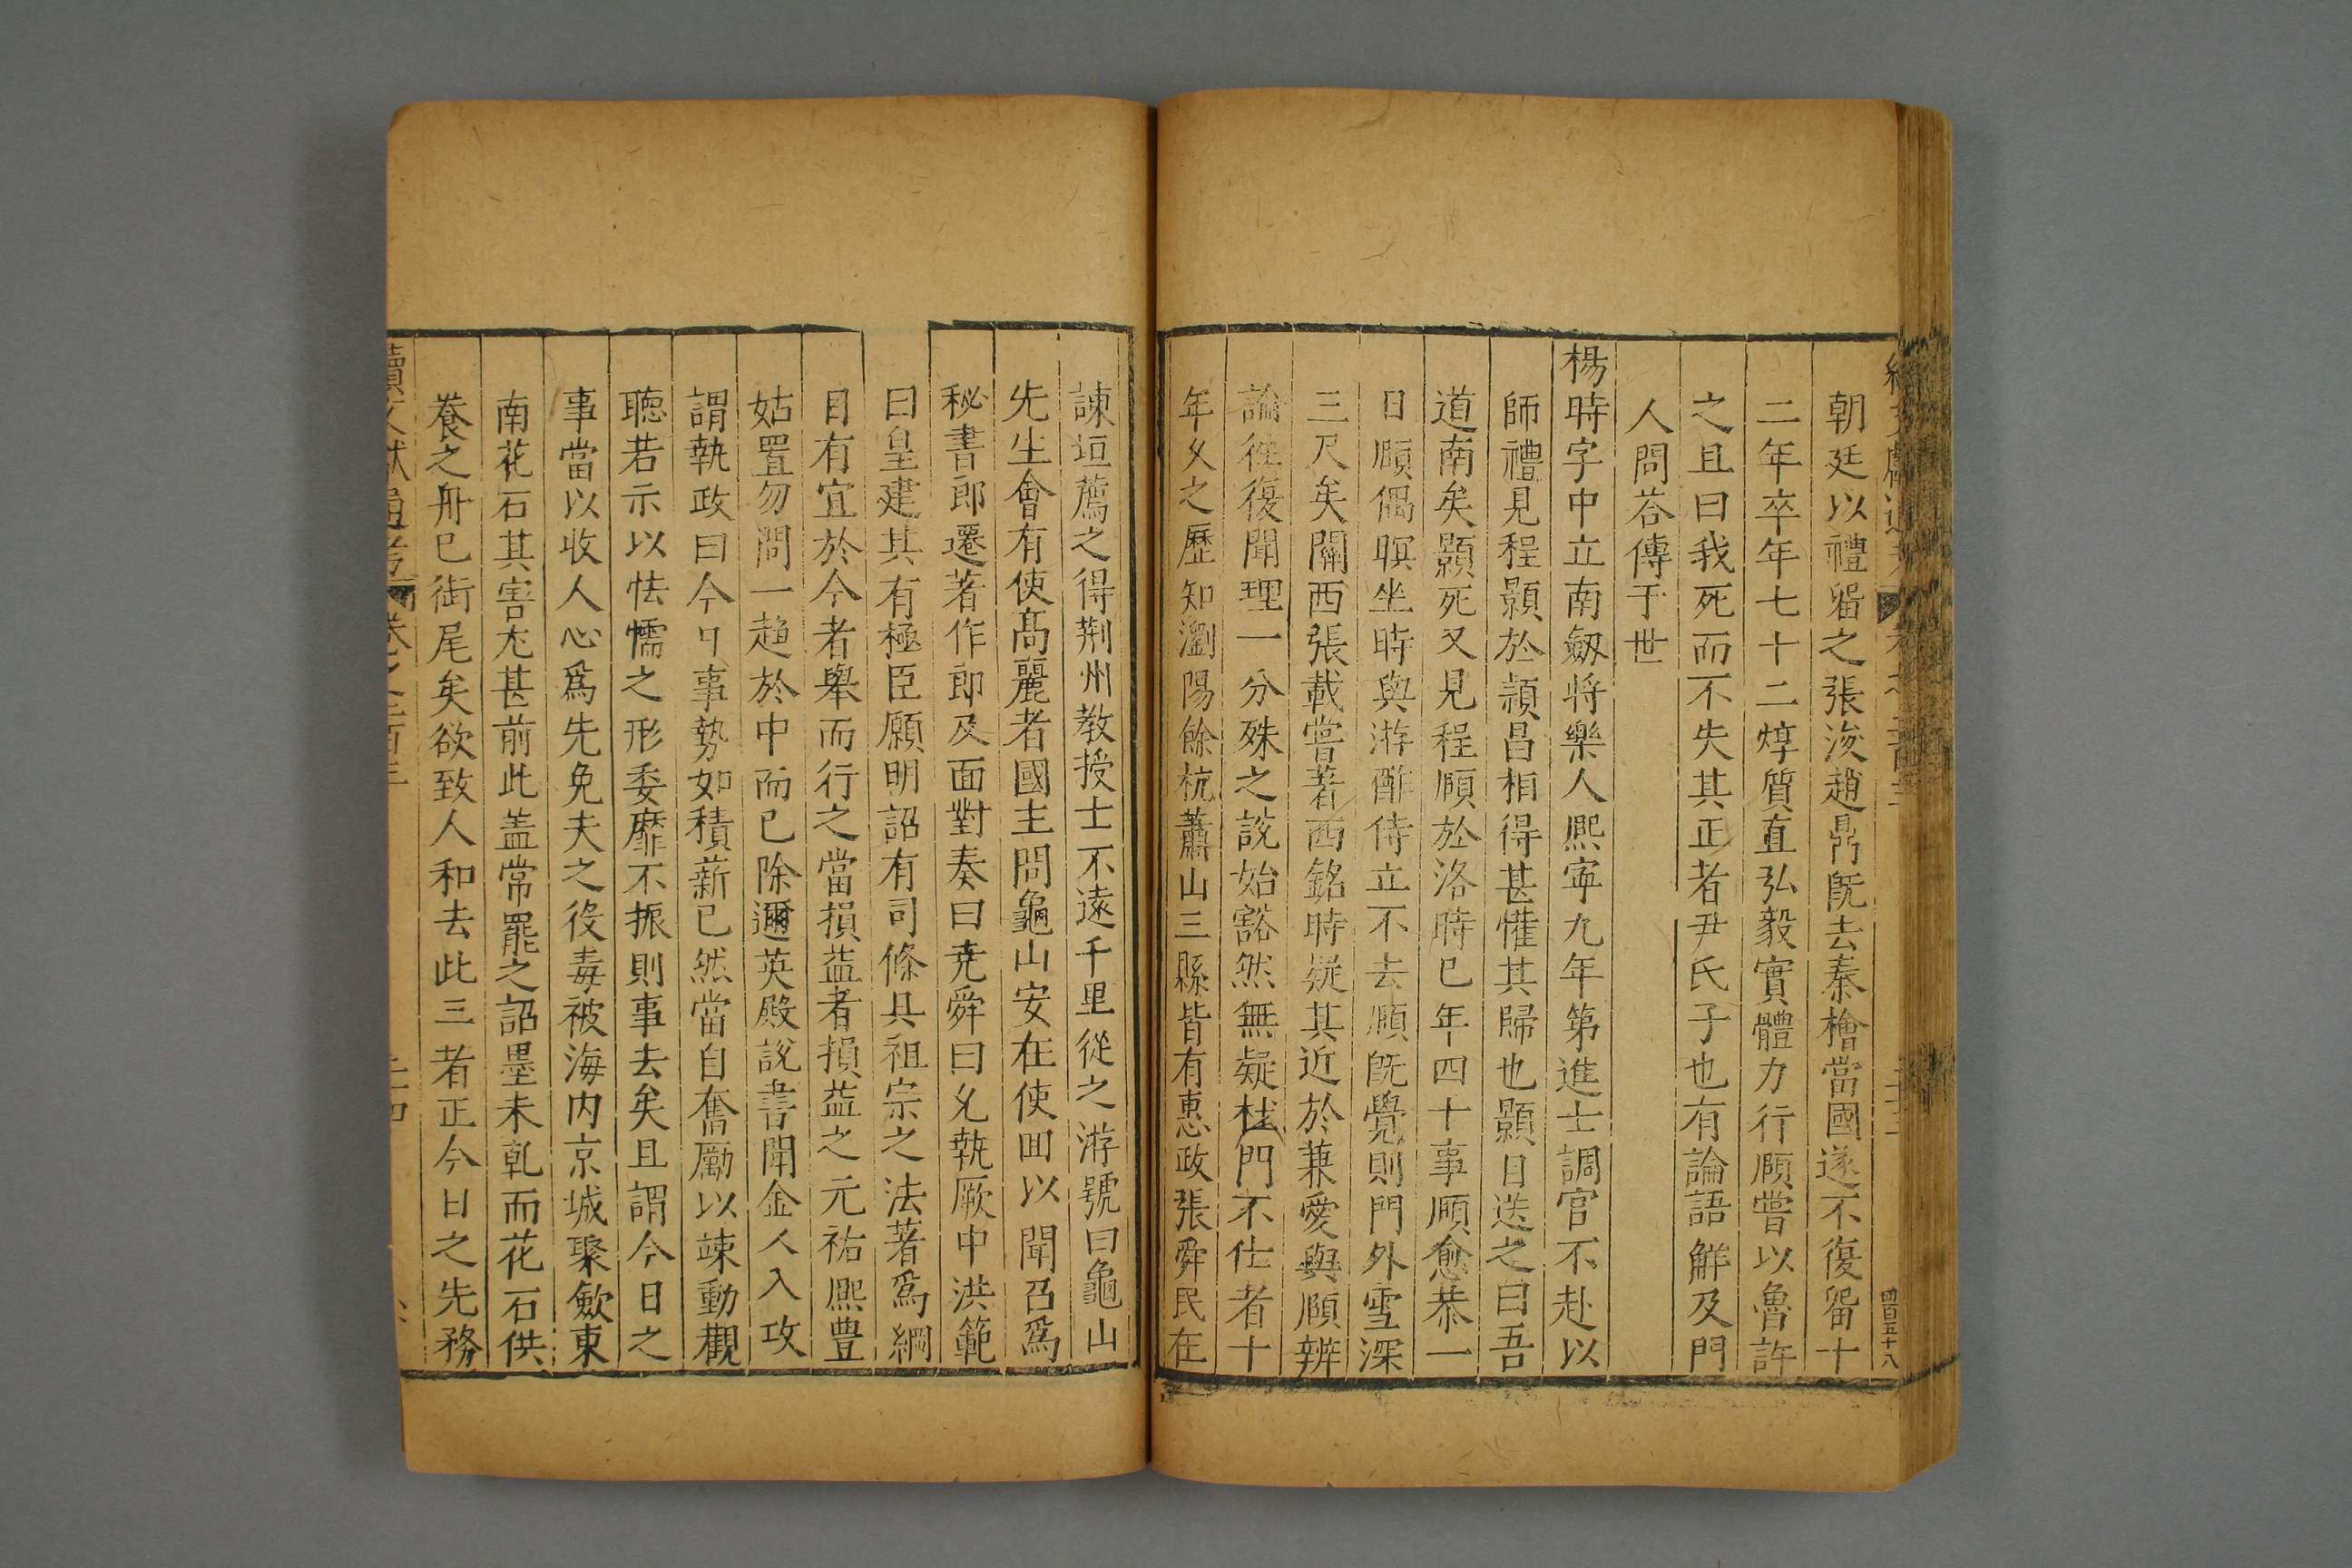 朝廷以禮畱之張浚趙鼎既去秦檜當國遂不復畱十
二年卒年七十二焞質直弘毅實體力行頤嘗以魯許
之且曰我死而不失其正者尹氏子也有論語觧及門
人問荅傳于世
楊時字中立南劔将樂人熈寧九年第進士調官不赴以
師禮見程顥於潁昌相得甚懽其歸也顥目送之曰吾
道南矣顥死又見程頤於洛時巳年四十事頤愈恭一
日頤偶瞑坐時與游酢侍立不去頤既覺則門外雪深
三尺矣關西張載嘗著西銘時疑其近於兼愛與頤辨
論徃復聞理一分殊之說始豁然無疑杜門不仕者十
年乆之歷知瀏陽餘杭蕭山三縣皆有惠政張舜民在
諫垣薦之得荆州教授士不遠千里從之游號曰龜山
先生會有使高麗者國主問龜山安在使回以聞召爲
秘書郎遷著作郎及面對奏曰尭舜曰允執厥中洪範
曰皇建其有極臣願明詔有司條具祖宗之法著爲綱
目有宜於今者舉而行之當損益者損益之元祐熈豊
姑置勿問一趋於中而已除邇英殿說書聞金人入攻
謂執政曰今日事勢如積薪已然當自奮勵以竦動觀
聽若示以怯懦之形委靡不振則事去矣且謂今日之
事當以收人心爲先免夫之役毒被海内京城聚歛東
南花石其害尤甚前此盖常罷之詔墨未乹而花石供
養之舟巳銜尾矣欲致人和去此三者正今日之先務
續文獻通考 卷之二百三
四百五十八